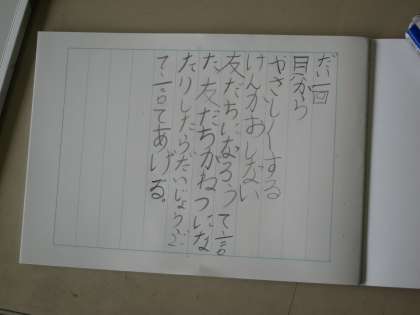 だい一回
目から
やさしくする
けんかおしない
友だちになろうて言
た友だちがねつにな
たりしたらだいじょうぶ
て言てあげる。